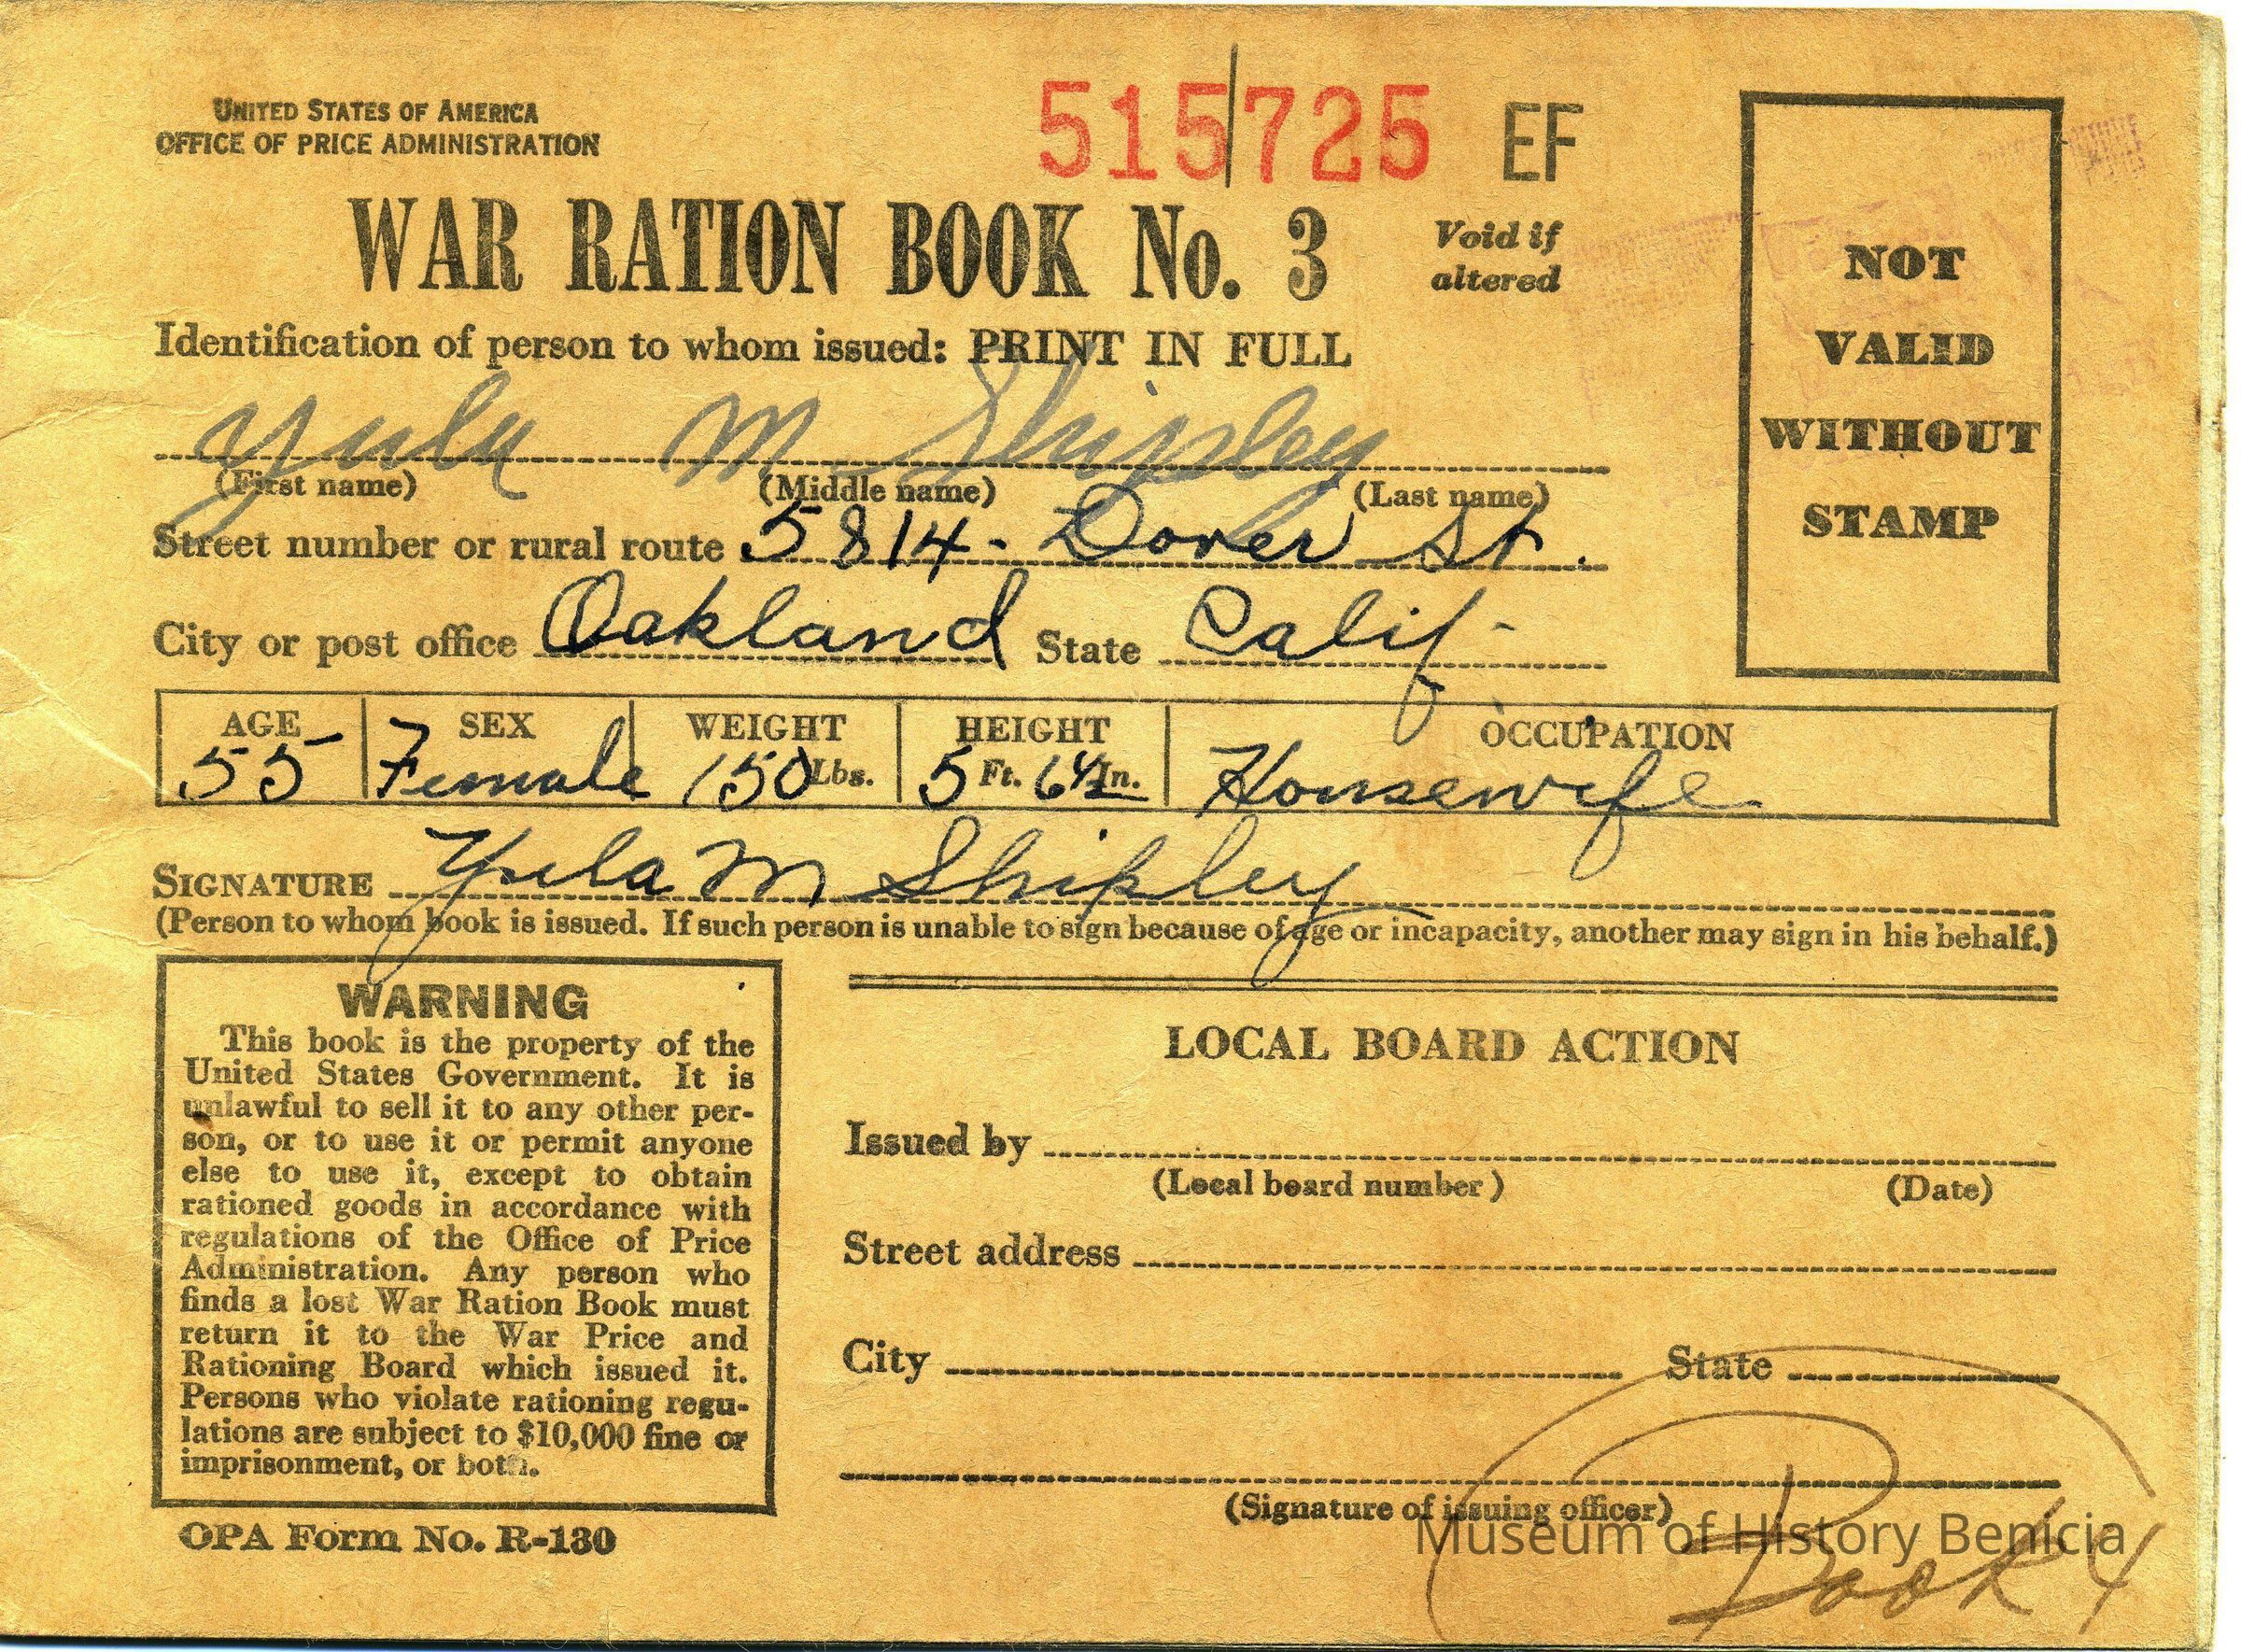 UNITED STATES OF AMERICA
OFFICE OF PRICE ADMINISTRATION
515725 EF
WAR RATION BOOK No. 3
Void if
altered
NOT
VALID
WITHOUT
STAMP
Identification of person to whom issued: PRINT IN FULL
Yula M Shipley
(First name) (Middle name) (Last name)
Street number or rural route 5814 - Dover St.
City or post office Oakland State Calif-
AGE SEX WEIGHT HEIGHT OCCUPATION
55 Female 150 Lbs. 5 Ft. In. Housewife
SIGNATURE Yula M Shipley
(Person to whom book is issued. If such person is unable to sign because of age or incapacity, another may sign in his behalf.)
WARNING
This book is the property of the
United States Government. It is
unlawful to sell it to any other per-
son, or to use it or permit anyone
else to use it, except to obtain
rationed goods in accordance with
regulations of the Office of Price
Administration. Any person who
finds a lost War Ration Book must
return it to the War Price and
Rationing Board which issued it.
Persons who violate rationing regu-
lations are subject to $10,000 fine or
imprisonment, or both.
OPA Form No. R-130
LOCAL BOARD ACTION
Issued by
(Local board number) (Date)
Street address
City State
(Signature of issuing officer)
Museum of History Benicia
Book 4